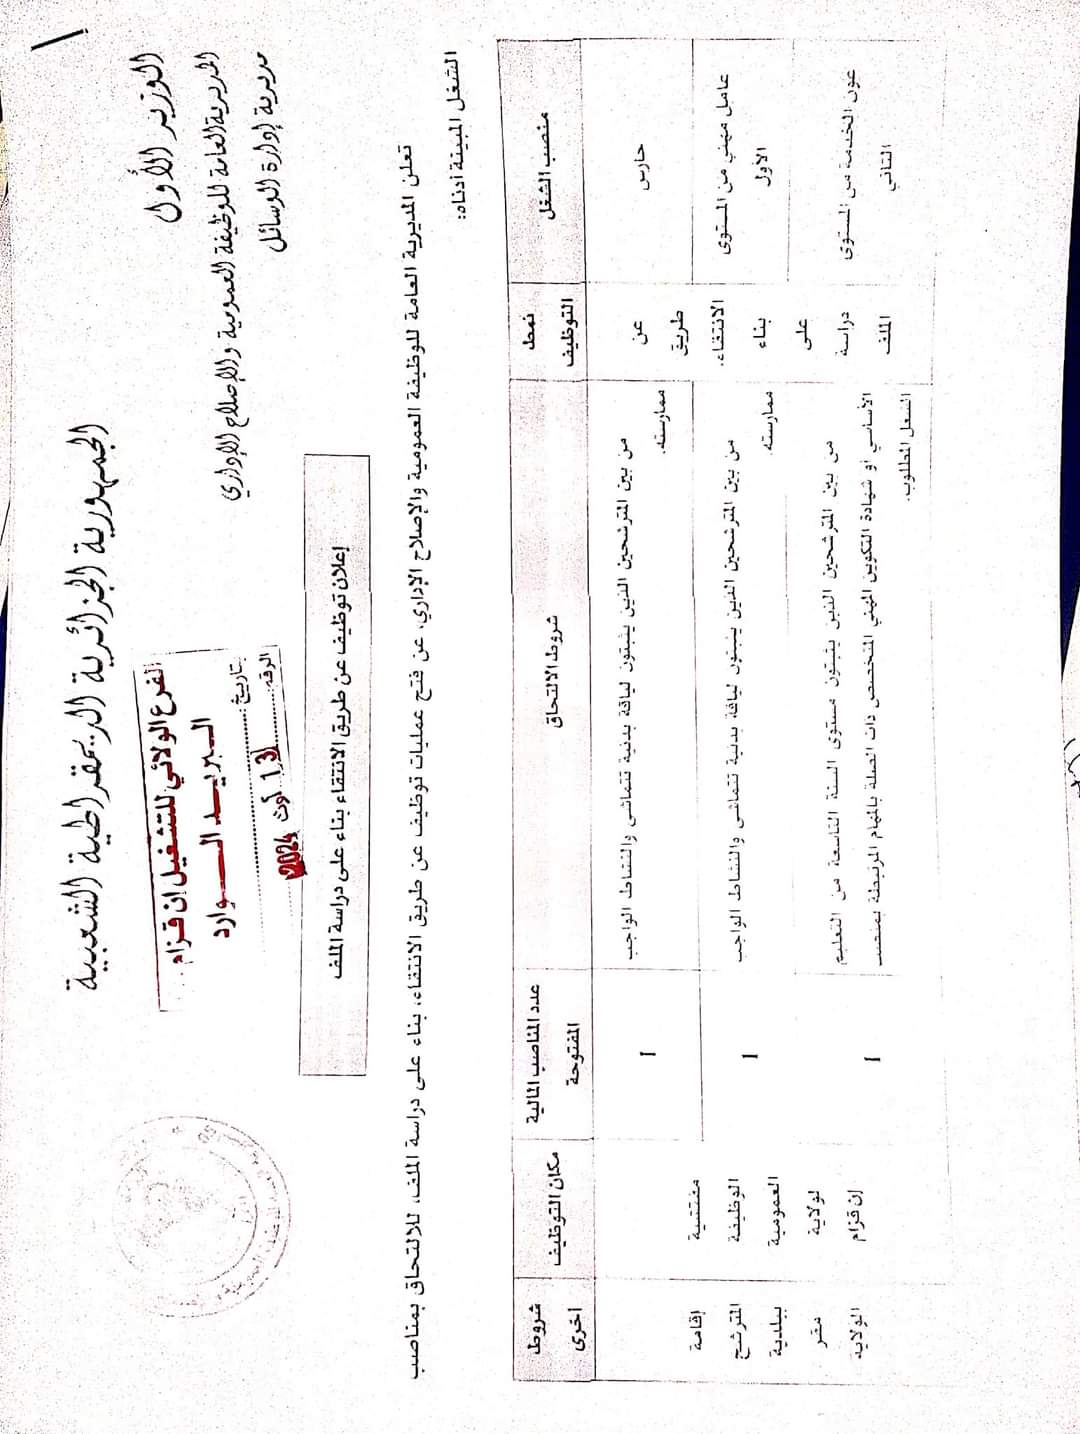 الجمهورية الجزائرية الديمقراطية الشعبية
الوزير الأول
المديرية العامة للوظيفة العمومية والإصلاح الإداري
مديرية إدارة الوسائل
الفرع الولائي للتشغيل ان قزام
البريد الوارد
بتاريخ:
الرقم:
13 أوت 2024
إعلان توظيف عن طريق الانتقاء بناء على دراسة الملف
تعلن المديرية العامة للوظيفة العمومية والإصلاح الإداري، عن فتح عمليات توظيف عن طريق الانتقاء، بناء على دراسة الملف، للالتحاق بمناصب
الشغل المبينة أدناه:
منصب الشغل
نمط
التوظيف
شروط الالتحاق
عدد المناصب المالية
المفتوحة
مكان التوظيف
شروط
أخرى
حارس
عن
طريق
الانتقاء،
بناء
على
دراسة
الملف
من بين المترشحين الذين يثبتون لياقة بدنية تتماشى والنشاط الواجب
ممارسته.
1
مفتشية
الوظيفة
العمومية
لولاية
إن قزام
إقامة
المترشح
ببلدية
مقر
الولاية
عامل مهني من المستوى
الأول
من بين المترشحين الذين يثبتون لياقة بدنية تتماشى والنشاط الواجب
ممارسته.
1
عون الخدمة من المستوى
الثاني
من بين المترشحين الذين يثبتون مستوى السنة التاسعة من التعليم
الأساسي أو شهادة التكوين المهني المتخصص ذات الصلة بالمهام المرتبطة بمنصب
الشغل المطلوب.
1